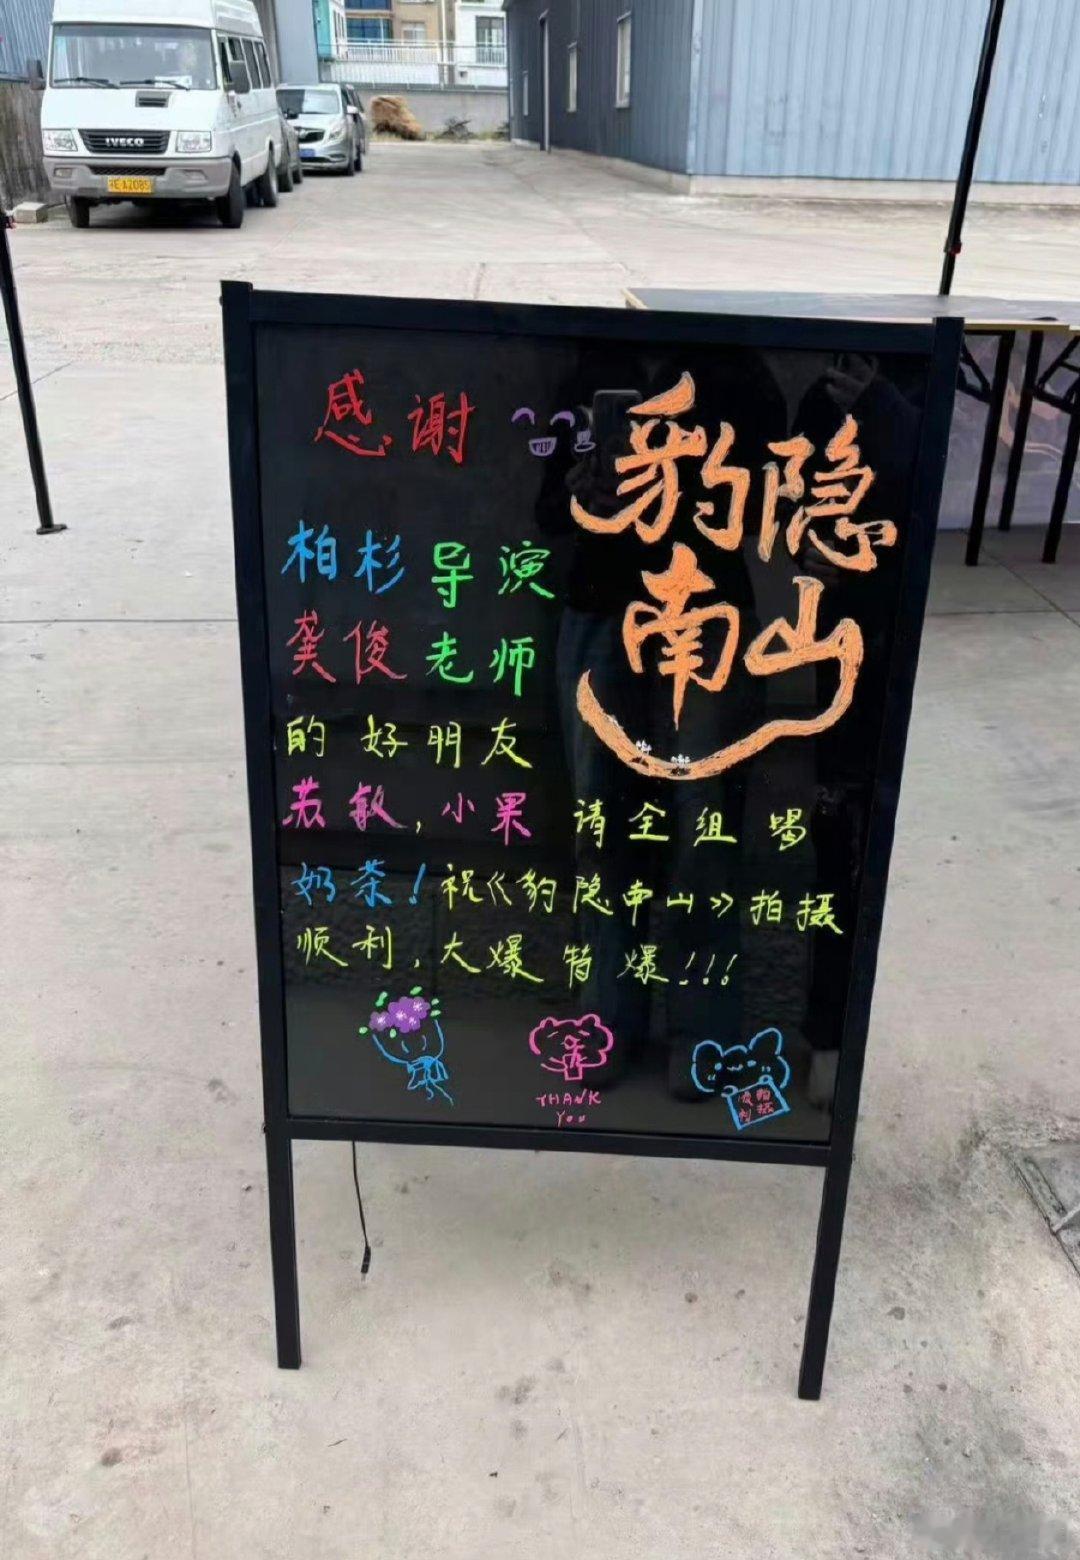 IVECO
感谢
豹隐
南山
柏杉导演
龚俊老师
的好朋友
苏敏,小果 请全组喝
奶茶!祝《豹隐南山》拍摄
顺利,大爆特爆!!!
THANK
YOU
拍摄
顺利